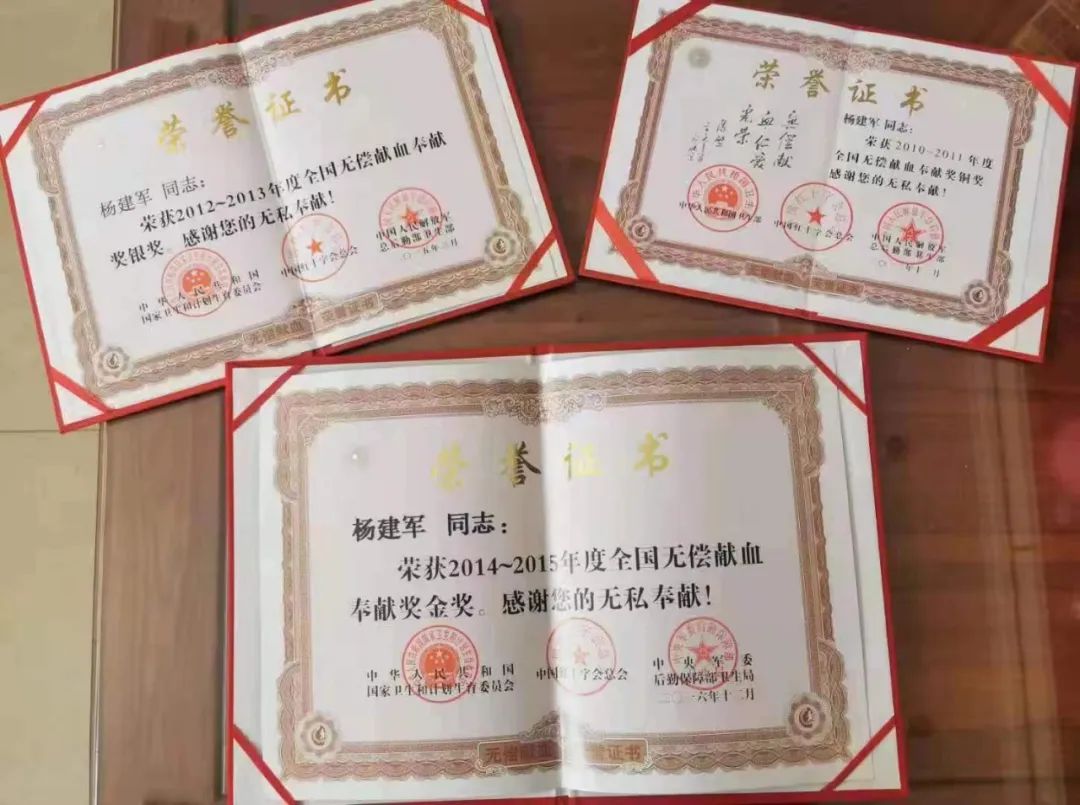 荣誉证书
杨建军 同志：
荣获2012~2013年度全国无偿献血奉献
奖银奖。感谢您的无私奉献！
中华人民共和国
国家卫生和计划生育委员会
中国红十字会总会
中国人民解放军
总后勤部卫生部
二〇一五年二月
无偿献血 荣誉证书
荣誉证书
无偿献
血仁爱
光荣
杨建军 同志：
荣获2010~2011年度
全国无偿献血奉献奖铜奖
感谢您的无私奉献！
中华人民共和国卫生部
中国红十字会总会
中国人民解放军
总后勤部卫生部
荣誉证书
杨建军 同志：
荣获2014~2015年度全国无偿献血
奉献奖金奖。感谢您的无私奉献！
中华人民共和国
国家卫生和计划生育委员会
中国红十字会总会
中央军委
后勤保障部卫生局
二〇一六年十二月
无偿献血 荣誉证书